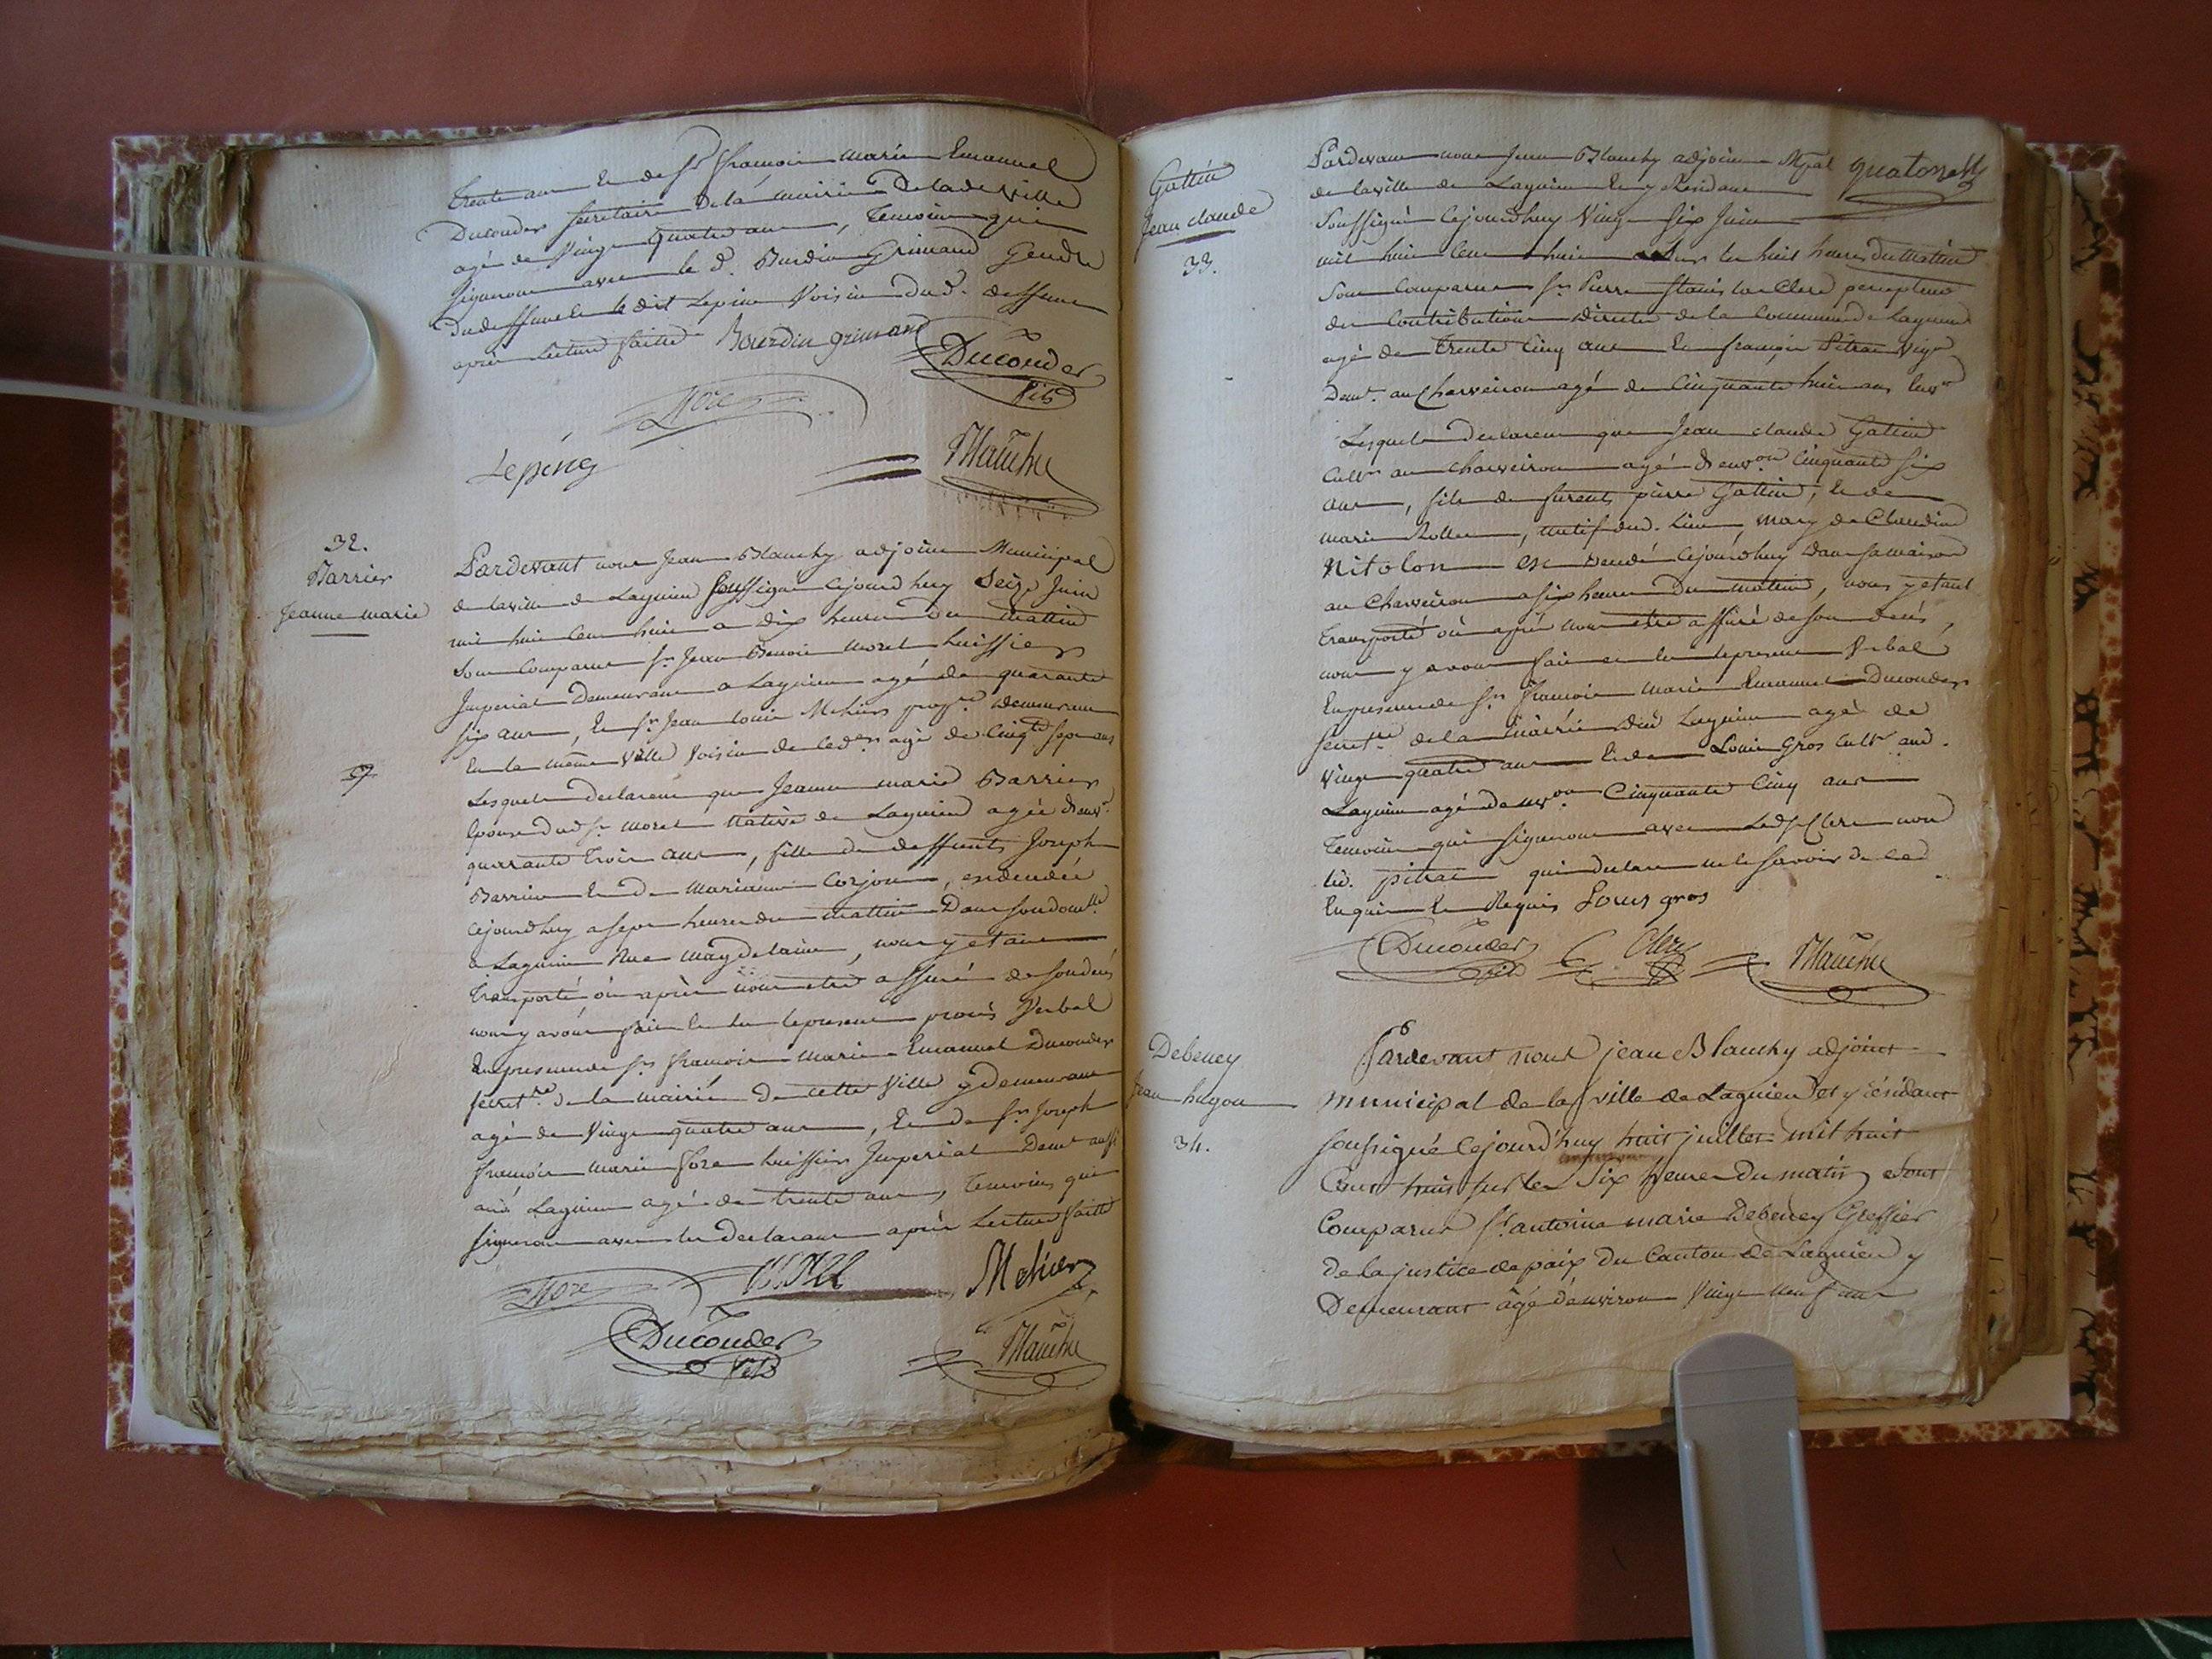 trente ans et de Sr. françois marie Emanuel
Ducouder secretaire de la mairie de lade ville
agé de vingt quatre ans, temoins qui
signeront avec le d. Burdin Grimaud Gendre
du deffunt et le dit Lepine voisin du d. deffunt
après lecture faitte Bourdin grimand
Ducouder
fils
Lepéng
Blanchy
32.
Barrier
Jeanne marie
Pardevant nous Jean Blanchy adjoint Municipal
de la ville de Lagnieu soussigné cejourdhuy seize Juin
mil huit cent huit a dix heures du mattin
sont comparus sr. Jean Benoit morel huissier
Imperial demeurant a Lagnieu agé de quarante
six ans, et sr. Jean Louis Mehier propre. demeurant
en la même ville voisin de lad. agé de cinqte sept ans
Lesquels declarent que Jeanne marie Barrier
épouse dud sr. morel native de Lagnieu agée d'envn.
quarante trois ans, fille de deffunts Joseph
Barrier et de mariane Corjon, est decedée
cejourdhuy a sept heures du mattin dans son domlle
a Lagnieu rue magdelaine, nous y etant
transporté où après nous etre assuré de son decés
nous y avons fait et lu le present procés verbal
En presence de sr. françois marie Emanuel Ducouder
secretre de la mairie de cette ville y demeurant
agé de vingt quatre ans, et de sr. Joseph
françois marie Hore huissier Imperial demt aussi
aud Lagnieu agé de trente ans, temoins qui
signeront avec les declarants après lecture faitte
Mehier
Ducouder
fils
Blanchy
Gattin
Jean claude
33.
Pardevant nous Jean Blanchy adjoint Mpal
de la ville de Lagnieu et y residant
soussigné cejourdhuy vingt six Juin
mil huit cent huit sur les huit heures du mattin
sont comparus sr. Pierre Clerc percepteur
des contributions directes de la commune de Lagnieu
agé de trente cinq ans et françois Pitrat vign
demt. au Charveiron agé de cinquante huit ans envon
Lesquels declarent que Jean claude Gattin
cultr au charveiron agé d'envon cinquante six
ans, fils de furents pierre Gattin, et de
marie Rollet, natif dud. lieu, mary de Claudine
Nitolon est decedé cejourdhuy dans sa maison
au Charveiron a six heures du mattin, nous y etant
transporté où après nous etre assuré de son decés,
nous y avons fait et lu le present verbal
En presence de sr. françois marie Emanuel Ducouder
secretre de la mairie dud Lagnieu agé de
vingt quatre ans et de Louis Gros cultr aud.
Lagnieu agé d'envon cinquante cinq ans
temoins qui signeront avec led sr Clerc non
led. pitrat qui declare ne le savoir de ce
enquis et requis Louis gros
Ducouder
fils
Clerc
Blanchy
Debeney
Jean hugon
34.
Pardevant nous jean Blanchy adjoint
municipal de la ville de Lagnieu et y résidant
soussigné cejourd'huy huit juillet mil huit
cent huit sur les six heures du matin sont
comparus Sr. antoine marie Debeney Greffier
de la justice de paix du canton de Lagnieu y
demeurant âgé d'environ vingt neuf ans